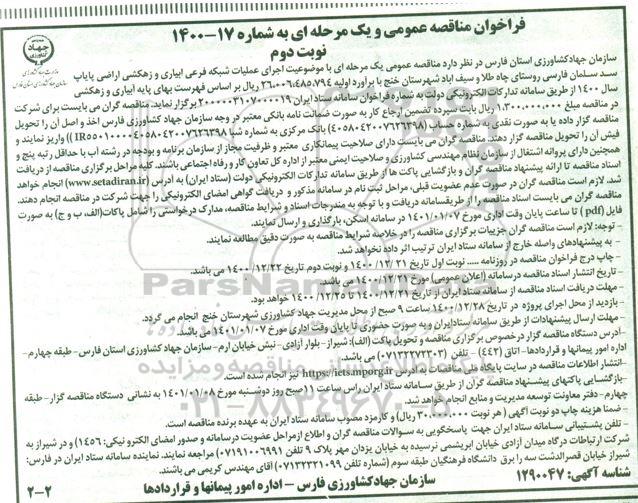 فراخوان مناقصه عمومی و یک مرحله ای به شماره ۱۷-۱۴۰۰
نوبت دوم
سازمان جهادکشاورزی استان فارس در نظر دارد مناقصه عمومی یک مرحله ای با موضوعیت اجرای عملیات شبکه فرعی آبیاری و زهکشی اراضی پایاب
سد سلمان فارسی روستای چاه طلا و سیف آباد شهرستان خنج با برآورد اولیه ۲۶،۰۰۶،۴۸۵،۷۹۴ ریال بر اساس فهرست بهای پایه آبیاری و زهکشی
سال ۱۴۰۰ از طریق سامانه تدارکات الکترونیکی دولت به شماره فراخوان سامانه ستاد ایران ۲۰۰۰۰۰۳۱۰۷۰۰۰۰۱۹ برگزار نماید. مناقصه گران می بایست برای شرکت
در مناقصه مبلغ ۱،۳۰۰،۰۰۰،۰۰۰ ریال بابت سپرده تضمین ارجاع کار به صورت ضمانت نامه بانکی معتبر در وجه سازمان جهاد کشاورزی فارس اخذ و اصل آن را تحویل
مناقصه گزار داده یا به صورت نقدی به شماره حساب (۴۰۵۸۰۴۲۰۰۷۶۲۶۳۹۸) بانک مرکزی به شماره شبا
فیش آن را تحویل مناقصه گزار دهند. مناقصه گران می بایست دارای صلاحیت پیمانکاری معتبر و ظرفیت مجاز از سازمان برنامه و بودجه در رشته آب با حداقل رتبه پنج و
همچنین دارای پروانه اشتغال از سازمان نظام مهندسی کشاورزی و صلاحیت ایمنی معتبر از اداره کل تعاون کار و رفاه اجتماعی باشند. کلیه مراحل برگزاری مناقصه از دریافت
اسناد مناقصه تا ارائه پیشنهاد مناقصه گران و بازگشایی پاکت ها از طریق سامانه تدارکات الکترونیکی دولت (ستاد ایران) به آدرس (www.setadiran.ir) انجام خواهد
شد. لازم است مناقصه گران در صورت عدم عضویت قبلی، مراحل ثبت نام در سامانه مذکور و دریافت گواهی امضای الکترونیکی را جهت شرکت در مناقصه انجام دهند.
مناقصه گران می بایست اسناد مناقصه را از طریق سامانه دریافت و با توجه به مندرجات اسناد و شرایط مناقصه، مدارک درخواستی را شامل پاکات (الف، ب و ج) به صورت
فایل (pdf) تا ساعت پایان وقت اداری مورخ ۱۴۰۱/۰۱/۰۷ در سامانه اسکن، بارگذاری و ارسال نمایند.
- توجه: لازم است مناقصه گران جزییات برگزاری مناقصه را در خلاصه شرایط مناقصه به صورت دقیق مطالعه نمایند.
- به پیشنهادهای واصله خارج از سامانه ستاد ایران ترتیب اثر داده نخواهد شد.
- چاپ درج فراخوان مناقصه در روزنامه ..... نوبت اول تاریخ ۱۴۰۰/۱۲/۲۱ و نوبت دوم تاریخ ۱۴۰۰/۱۲/۲۲ می باشد.
- تاریخ انتشار اسناد مناقصه در سامانه (اعلان عمومی) مورخ ۱۴۰۰/۱۲/۲۱ می باشد.
- مهلت دریافت اسناد مناقصه از سامانه ستاد ایران از تاریخ ۱۴۰۰/۱۲/۲۱ تا ۱۴۰۰/۱۲/۲۵ خواهد بود.
- بازدید از محل اجرای پروژه در تاریخ ۱۴۰۰/۱۲/۲۸ ساعت ۹ صبح از محل مدیریت جهاد کشاورزی شهرستان خنج انجام می گردد.
- مهلت ارسال پیشنهادات از طریق سامانه ستاد ایران و به صورت حضوری تا پایان وقت اداری مورخ ۱۴۰۱/۰۱/۰۷ می باشد.
- آدرس دستگاه مناقصه گزار در خصوص برگزاری مناقصه و تحویل پاکت (الف): شیراز- بلوار آزادی- نبش خیابان ارم- سازمان جهاد کشاورزی استان فارس- طبقه چهارم-
اداره امور پیمانها و قراردادها- اتاق (۴۴۲) تلفن (۰۷۱۳۲۲۷۲۳۰۳) می باشد.
- انتشار اطلاعات مناقصه در سایت پایگاه ملی مناقصات به آدرس https://iets.mporg.ir نیز انجام شده است.
- بازگشایی پاکتهای پیشنهاد مناقصه گران از طریق سامانه ستاد ایران راس ساعت ۱۱ صبح روز دوشنبه مورخ ۱۴۰۱/۰۱/۰۸ به نشانی دستگاه مناقصه گزار- طبقه
چهارم- دفتر معاونت توسعه مدیریت و منابع انجام خواهد شد.
- ضمنا هزینه چاپ دو نوبت آگهی (هر نوبت ۳۰،۰۰۰،۰۰۰ ریال) و کارمزد مصوب سامانه ستاد ایران به عهده برنده مناقصه است.
- تلفن پشتیبانی سامانه ستاد ایران جهت پاسخگویی به سوالات مناقصه گران و اطلاع از مراحل عضویت در سامانه و صدور امضای الکترونیکی: (۱۴۵۶) و در شیراز به
شرکت ارتباطات درگاه میدان آزادی خیابان ابریشمی نرسیده به خیابان یزدان مهر پلاک ۹ تلفن (۰۷۱۹۱۰۰۶۹۹۱) مراجعه نمایند. نماینده سامانه ستاد ایران در فارس:
شیراز خیابان قصرالدشت سه راه برق دانشگاه فرهنگیان طبقه سوم (شماره تلفن ۰۷۱۳۲۳۲۱۰۹۹) آقای مهندس کریمی می باشند.
شناسه آگهی: ۱۲۹۰۰۴۷
سازمان جهادکشاورزی فارس – اداره امور پیمانها و قراردادها
۲-۲
ParsNamadData
۰۲۱-۸۸۳۴۹۶۷۰-۵